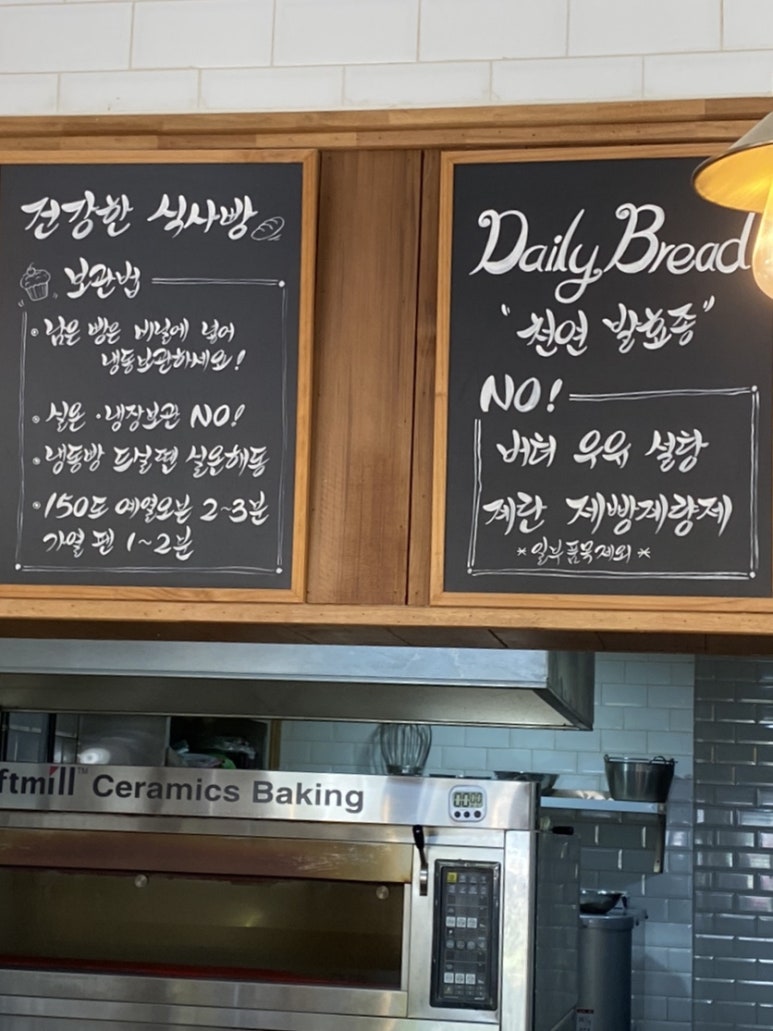 건강한 식사빵
보관법
남은 빵은 비닐에 넣어
냉동보관하세요!
실온·냉장보관 NO!
냉동빵 드실땐 실온해동
150도 예열오븐 2~3분
가열 팬 1~2분
Daily Bread
"천연 발효종"
NO!
버터 우유 설탕
계란 제빵개량제
*일부품목제외*
ftmill™ Ceramics Baking
00:00